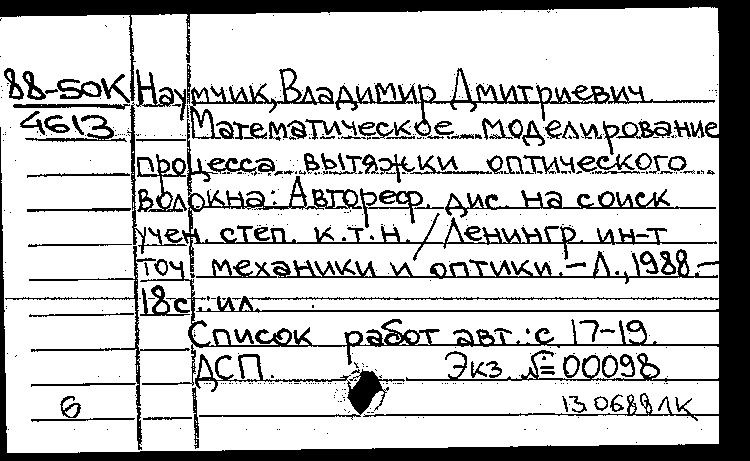 88-50К Наумчик, Владимир Дмитриевич
4613 Математическое моделирование
процесса вытяжки оптического
волокна: Автореф. дис. на соиск
учен. степ. к.т.н. / Ленингр. ин-т
точ механики и оптики. – Л., 1988. –
18с.: ил.
Список работ авт.: с 17-19.
ДСП. Экз. № 00098
6 13.0688ЛК